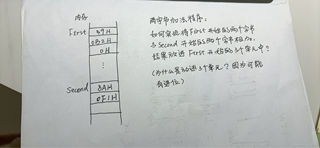 内存
First
89H
0B2H
0H
⋮
Second
8AH
0F1H
两字节加法程序:
如何实现将First开始的两个字节
与Second开始的两个字节相加,
结果放进First开始的3个单元中?
(为什么要放进3个单元?因为可能
有进位)